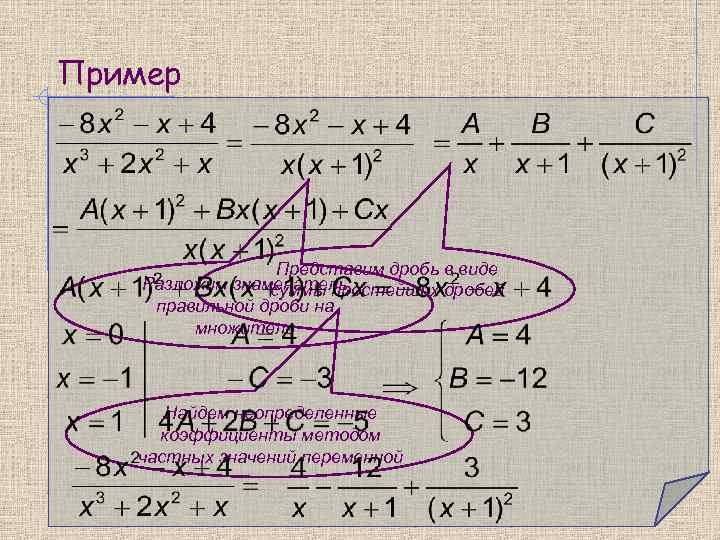 Пример
(− 8x² − x + 4)/(x³ + 2x² + x) = (− 8x² − x + 4)/(x(x + 1)²) = A/x + B/(x + 1) + C/(x + 1)²
= (A(x + 1)² + Bx(x + 1) + Cx)/(x(x + 1)²)
Представим дробь в виде
суммы простейших дробей
Разложим знаменатель
правильной дроби на
множители
A(x + 1)² + Bx(x + 1) + Cx = −8x² − x + 4
x = 0 | A = 4
x = −1 | −C = −3
x = 1 | 4A + 2B + C = −5
⇒ { A = 4
B = −12
C = 3
Найдем неопределенные
коэффициенты методом
частных значений переменной
(− 8x² − x + 4)/(x³ + 2x² + x) = 4/x − 12/(x + 1) + 3/(x + 1)²